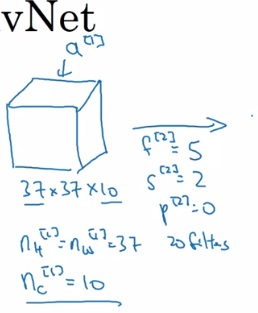 vNet
a^[1]
37×37×10
n_H^[1] = n_W^[1] = 37
n_C^[1] = 10
f^[2] = 5
s^[2] = 2
p^[2] = 0
20 filters